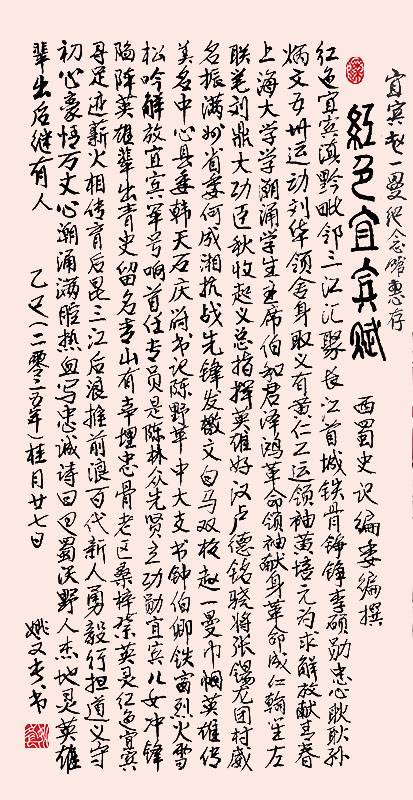 宜宾赵一曼纪念馆惠存
红色宜宾赋
西蜀史记编委编撰
红色宜宾滇黔毗邻三江汇聚长江首城铁骨铮铮李硕勋忠心耿耿孙
炳文五卅运动刘华领舍身取义有黄仁工运领袖黄培元为求解放献青春
上海大学学潮涌学生主席伯和君泽鸿革命领袖献身革命成仁翰笙左
联茗刘鼎大功臣秋收起义总指挥英雄好汉卢德铭骁将张锡龙国村威
名振满州省委何成湘抗战先锋发檄文白马双枪赵一曼巾帼英雄传
美名中心县委韩天石庆府书记陈野苹中大支书钟伯卿铁窗烈火雪
松吟解放宜宾军号响首任专员是陈林众先贤立功勋宜宾儿女冲锋
陷阵英雄辈出青史留名青山有幸埋忠骨老区桑梓祭英灵红色宜宾
寻足迹薪火相传育后昆三江后浪推前浪百代新人勇毅行担道义守
初心豪情万丈心潮涌满腔热血写忠诚诗曰回蜀沃野人杰地灵英雄
辈出后继有人
乙巳(二零二五年)桂月廿七日
姚又专书